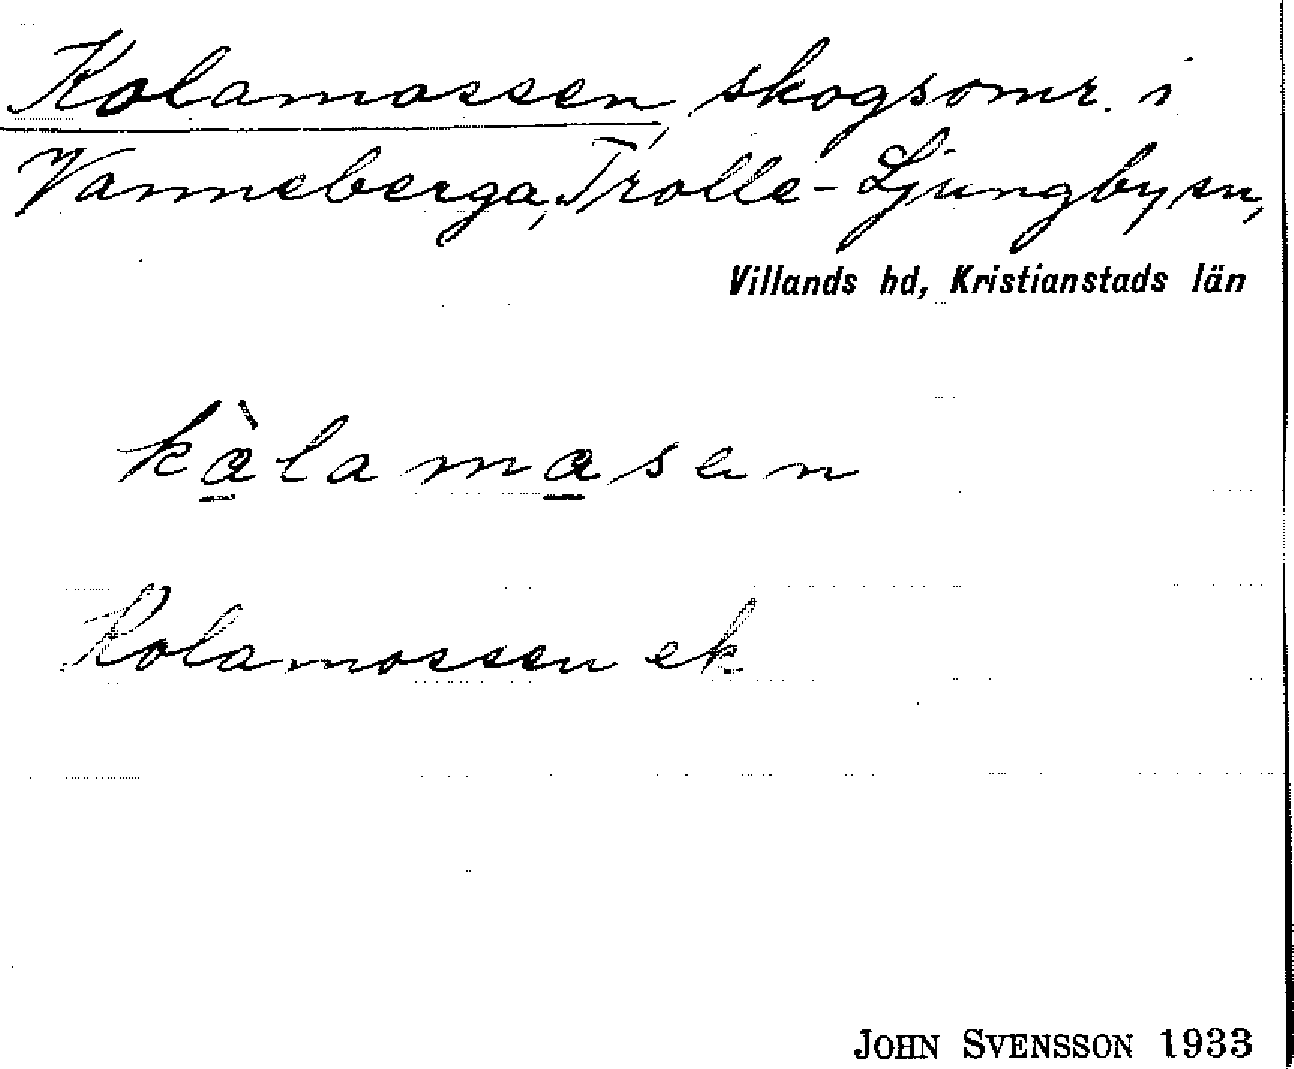 Kolamossen, skogsomr. i
Vanneberga, Trolle-Ljungby sn,
Villands hd, Kristianstads län
kàlamasen
Kolamossen ek
JOHN SVENSSON 1933